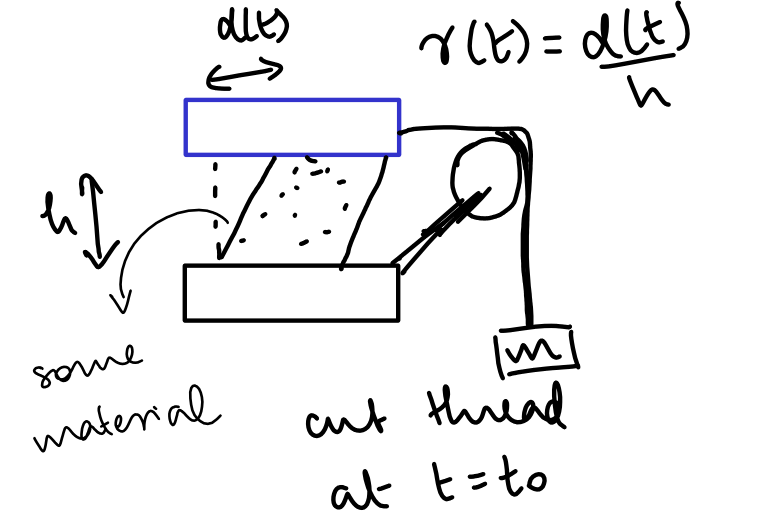 d(t)
γ(t) = d(t)/h
h
some
material
m
cut thread
at t = t0